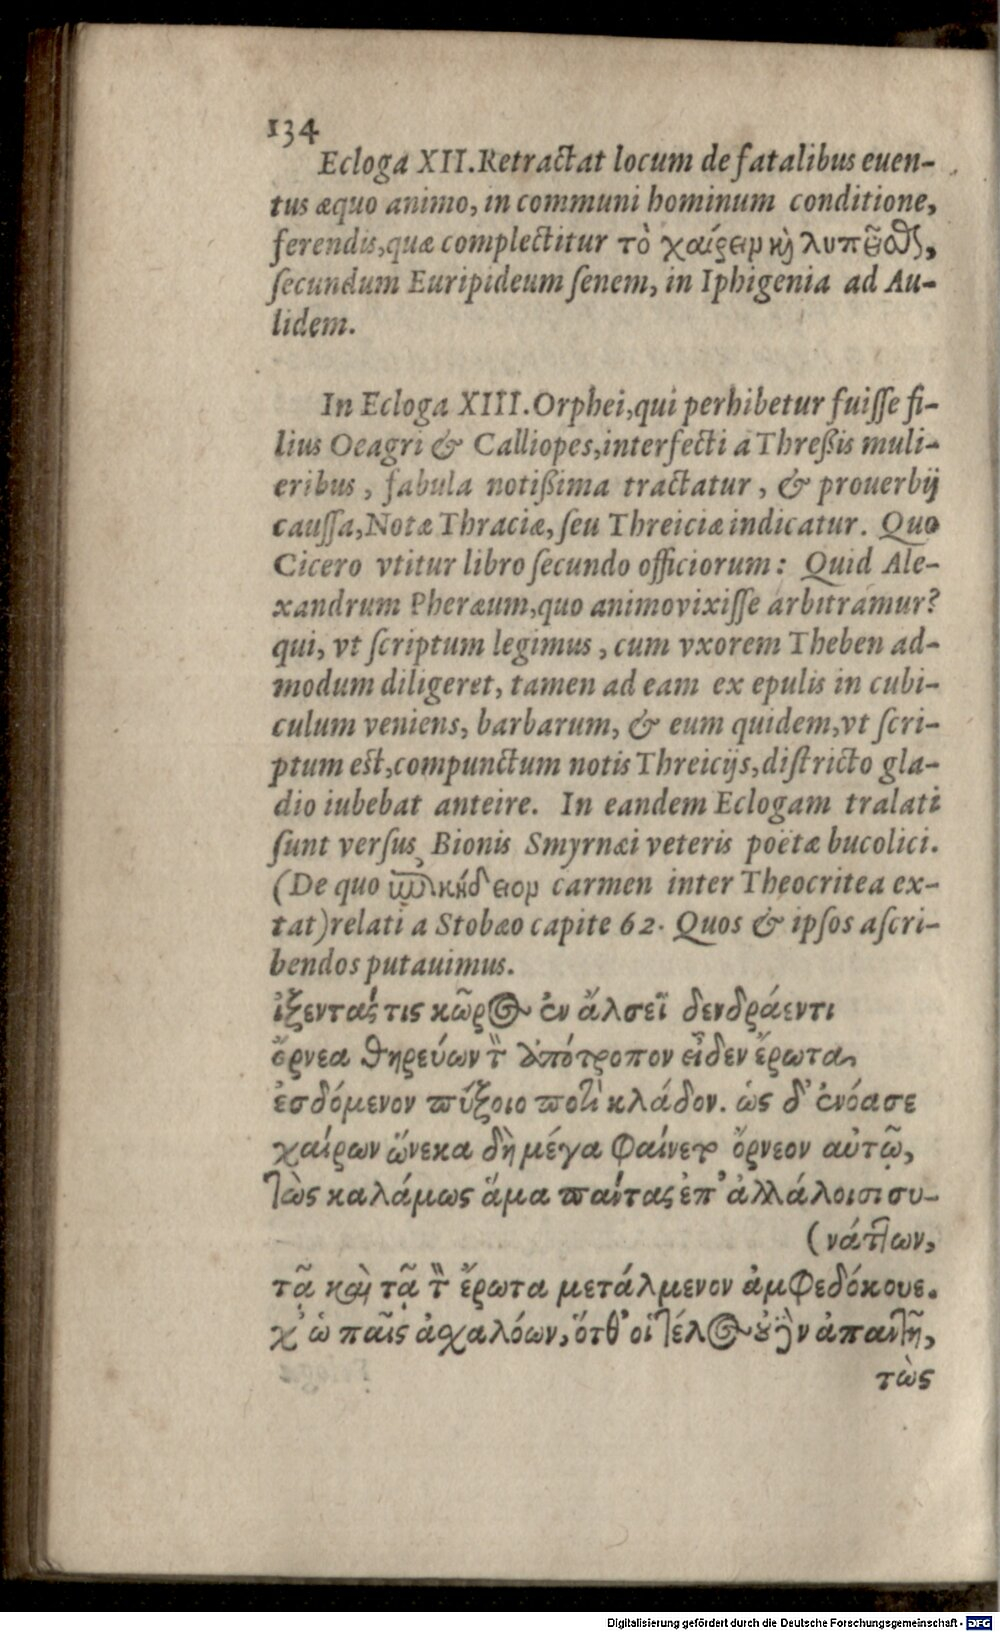 134
Ecloga XII. Retractat locum de fatalibus euen-
tus æquo animo, in communi hominum conditione,
ferendis, quæ complectitur τὸ χαίρειν κὴ λυπεῖσθαι,
ſecundum Euripideum ſenem, in Iphigenia ad Au-
lidem.
In Ecloga XIII. Orphei, qui perhibetur fuiſſe fi-
lius Oeagri & Calliopes, interfecti a Threßis muli-
eribus, fabula notißima tractatur, & prouerbij
cauſſa, Notæ Thraciæ, ſeu Threiciæ indicatur. Quo
Cicero vtitur libro ſecundo officiorum: Quid Ale-
xandrum Pheræum, quo animo vixiſſe arbitramur?
qui, vt ſcriptum legimus, cum vxorem Theben ad-
modum diligeret, tamen ad eam ex epulis in cubi-
culum veniens, barbarum, & eum quidem, vt ſcri-
ptum est, compunctum notis Threicijs, diſtricto gla-
dio iubebat anteire. In eandem Eclogam tralati
ſunt verſus Bionis Smyrnæi veteris poëtæ bucolici.
(De quo ἐπικήδειον carmen inter Theocritea ex-
tat) relati a Stobæo capite 62. Quos & ipſos aſcri-
bendos putauimus.
ἰξευτάς τις κῶρος ἐν ἄλσεϊ δενδράεντι
ὄρνεα θηρεύων τὸν ἀπότροπον εἶδεν ἔρωτα,
ἐσδόμενον πύξοιο ποτὶ κλάδον. ὡς δ' ἐνόασε
χαίρων ὥνεκα δὴ μέγα φαίνετο ὄρνεον αὐτῷ,
τὼς καλάμως ἅμα πάντας ἐπ' ἀλλάλοισι συ-
(νάπτων,
τᾷ καὶ τᾷ τὸν ἔρωτα μετάλμενον ἀμφεδόκουε.
χ' ὡ παῖς ἀσχαλόων, ὅτθ' οἱ τέλος οὐδὲν ἀπαντῇ,
τὼς
Digitalisierung gefördert durch die Deutsche Forschungsgemeinschaft - DFG